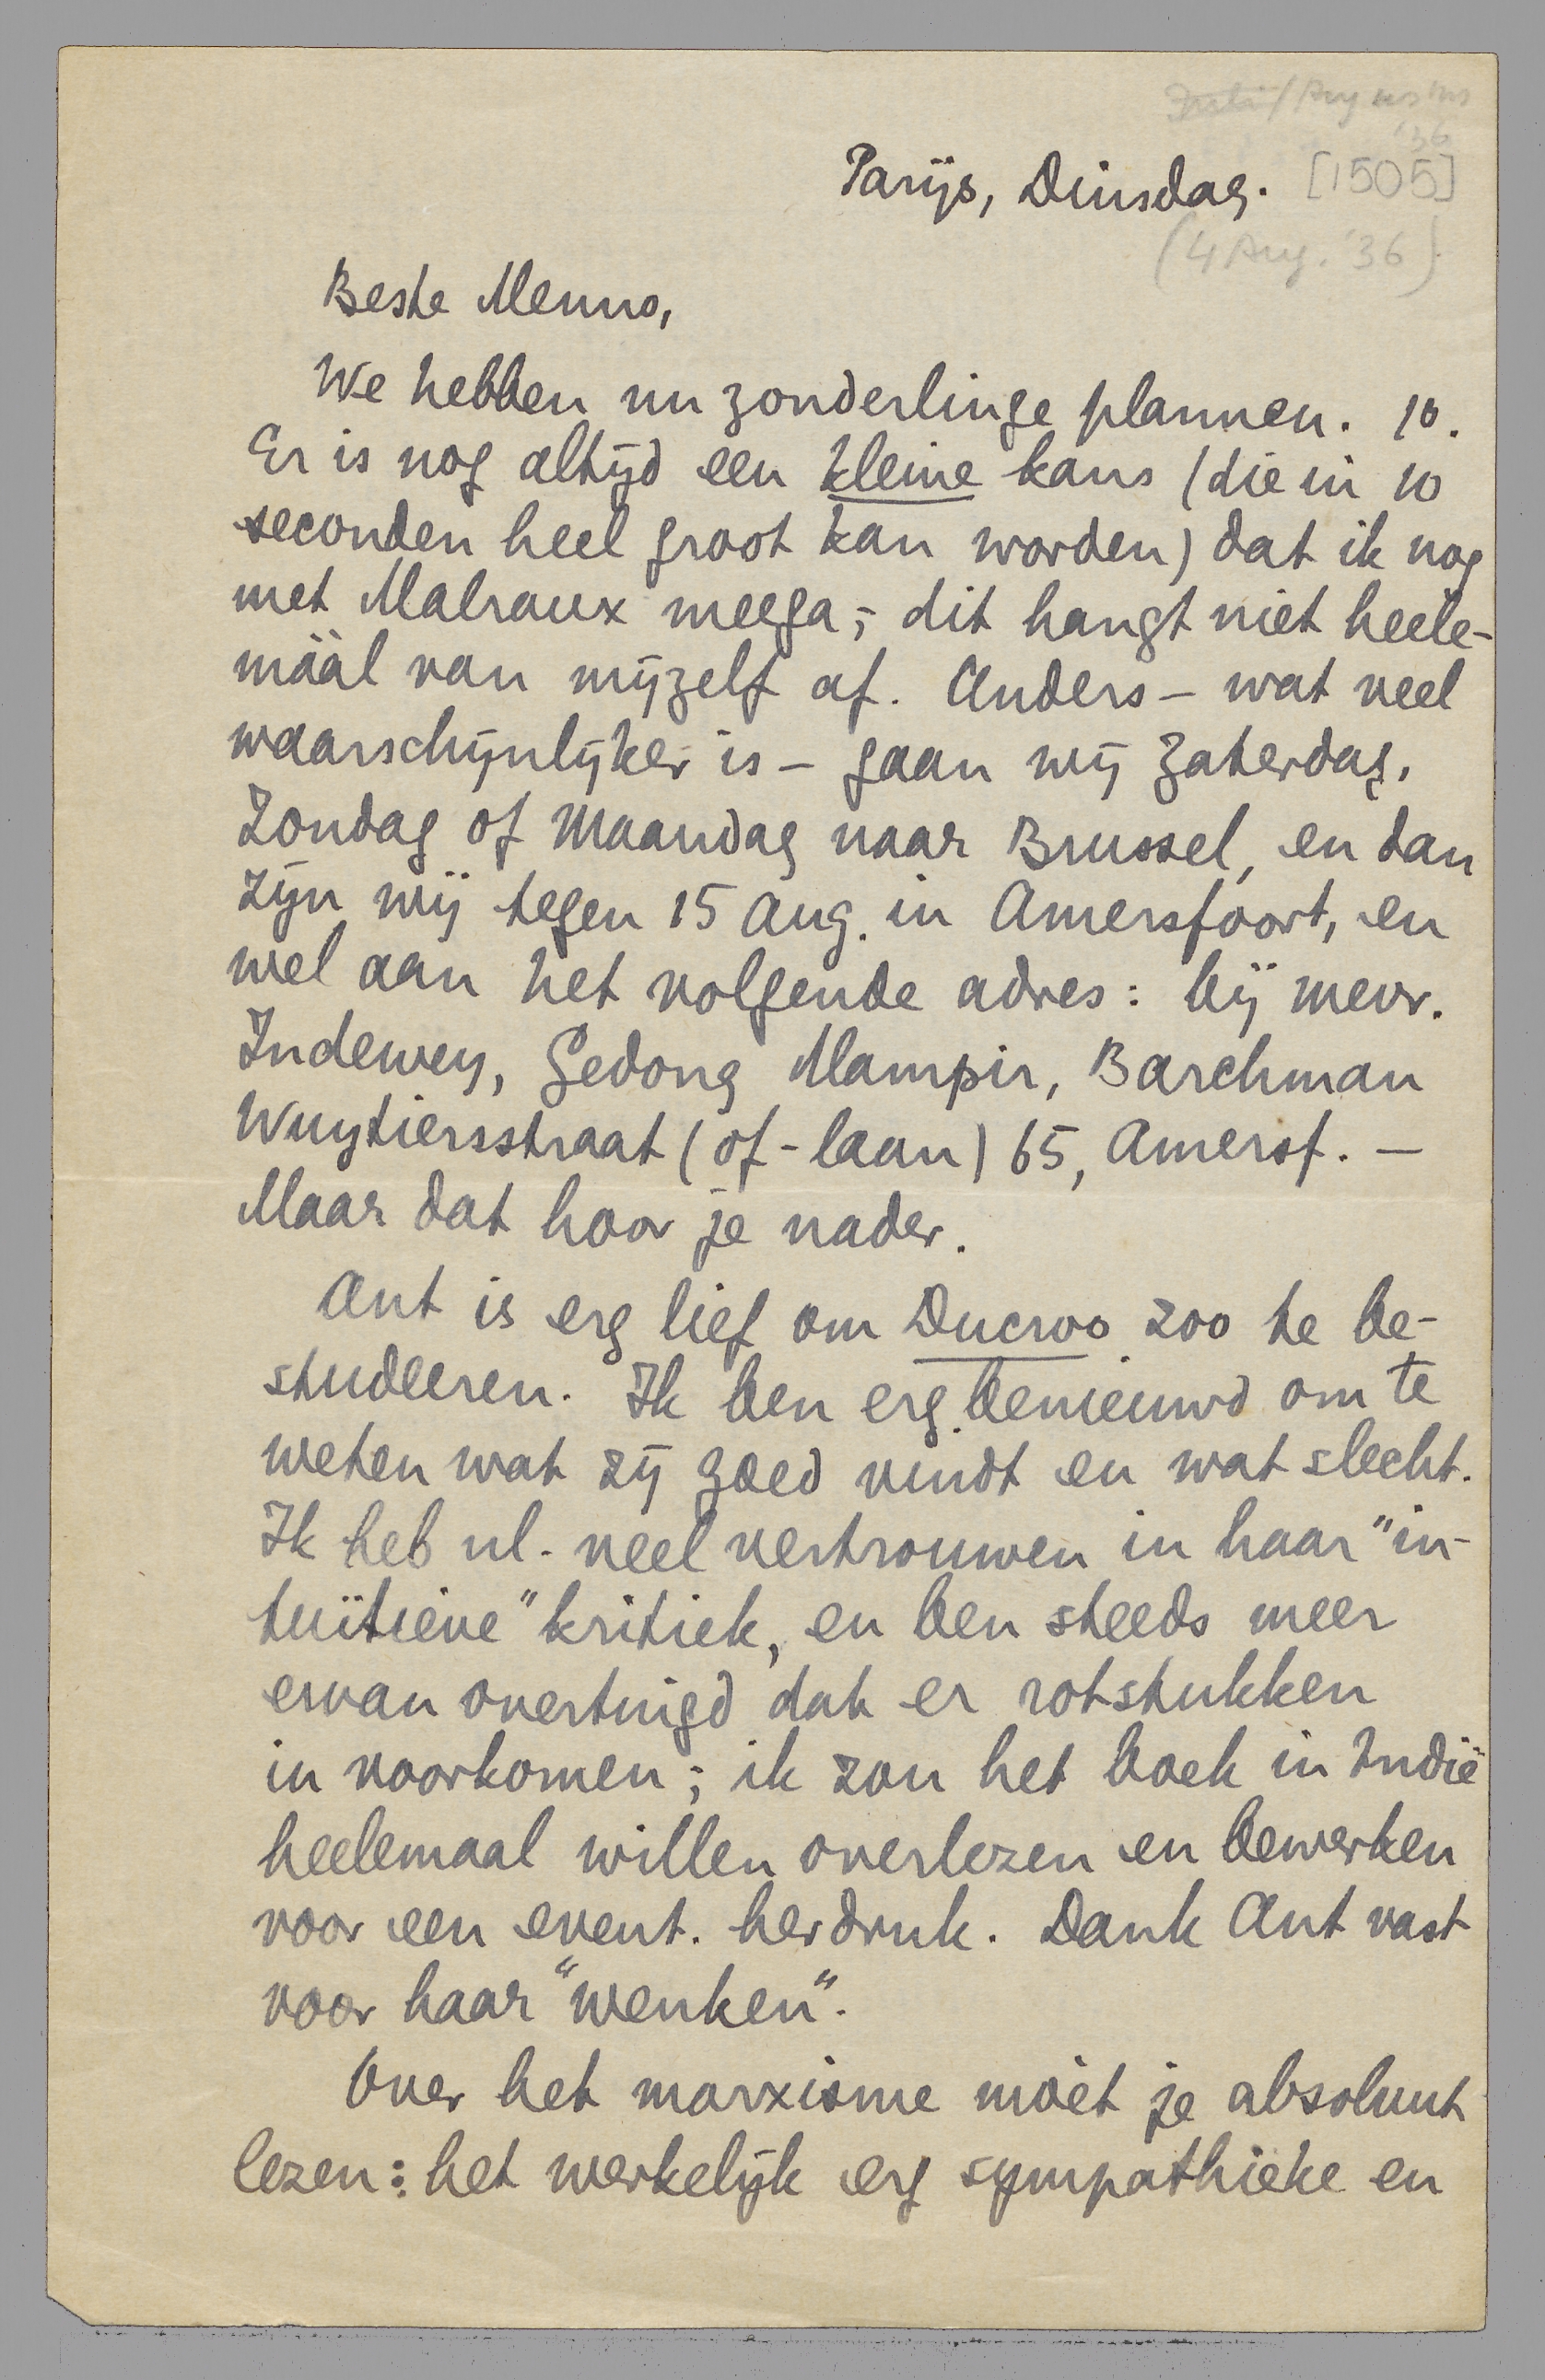 Juli/Augustus
'36
Parijs, Dinsdag. [1505]
(4 Aug. '36)
Beste Menno,
We hebben nu zonderlinge plannen. 1o.
Er is nog altijd een kleine kans (die in 10
seconden heel groot kan worden) dat ik nog
met Malraux meega; - dit hangt niet heele-
máál van mijzelf af. Anders - wat veel
waarschijnlijker is - gaan wij Zaterdag,
Zondag of Maandag naar Brussel, en dan
zijn wij tegen 15 Aug. in Amersfoort, en
wel aan het volgende adres: bij mevr.
Indewey, Gedong Mampir, Barchman
Wuytiersstraat (of -laan) 65, Amersf. -
Maar dat hoor je nader.
Ant is erg lief om Ducroo zoo te be-
studeeren. Ik ben erg benieuwd om te
weten wat zij goed vindt en wat slecht.
Ik heb nl. veel vertrouwen in haar "in-
tuïtieve" kritiek, en ben steeds meer
ervan overtuigd dat er rotstukken
in voorkomen; ik zou het boek in Indië
heelemaal willen overlezen en bewerken
voor een event. herdruk. Dank Ant vast
voor haar "wenken".
Over het marxisme móet je absoluut
lezen: het werkelijk erg sympathieke en